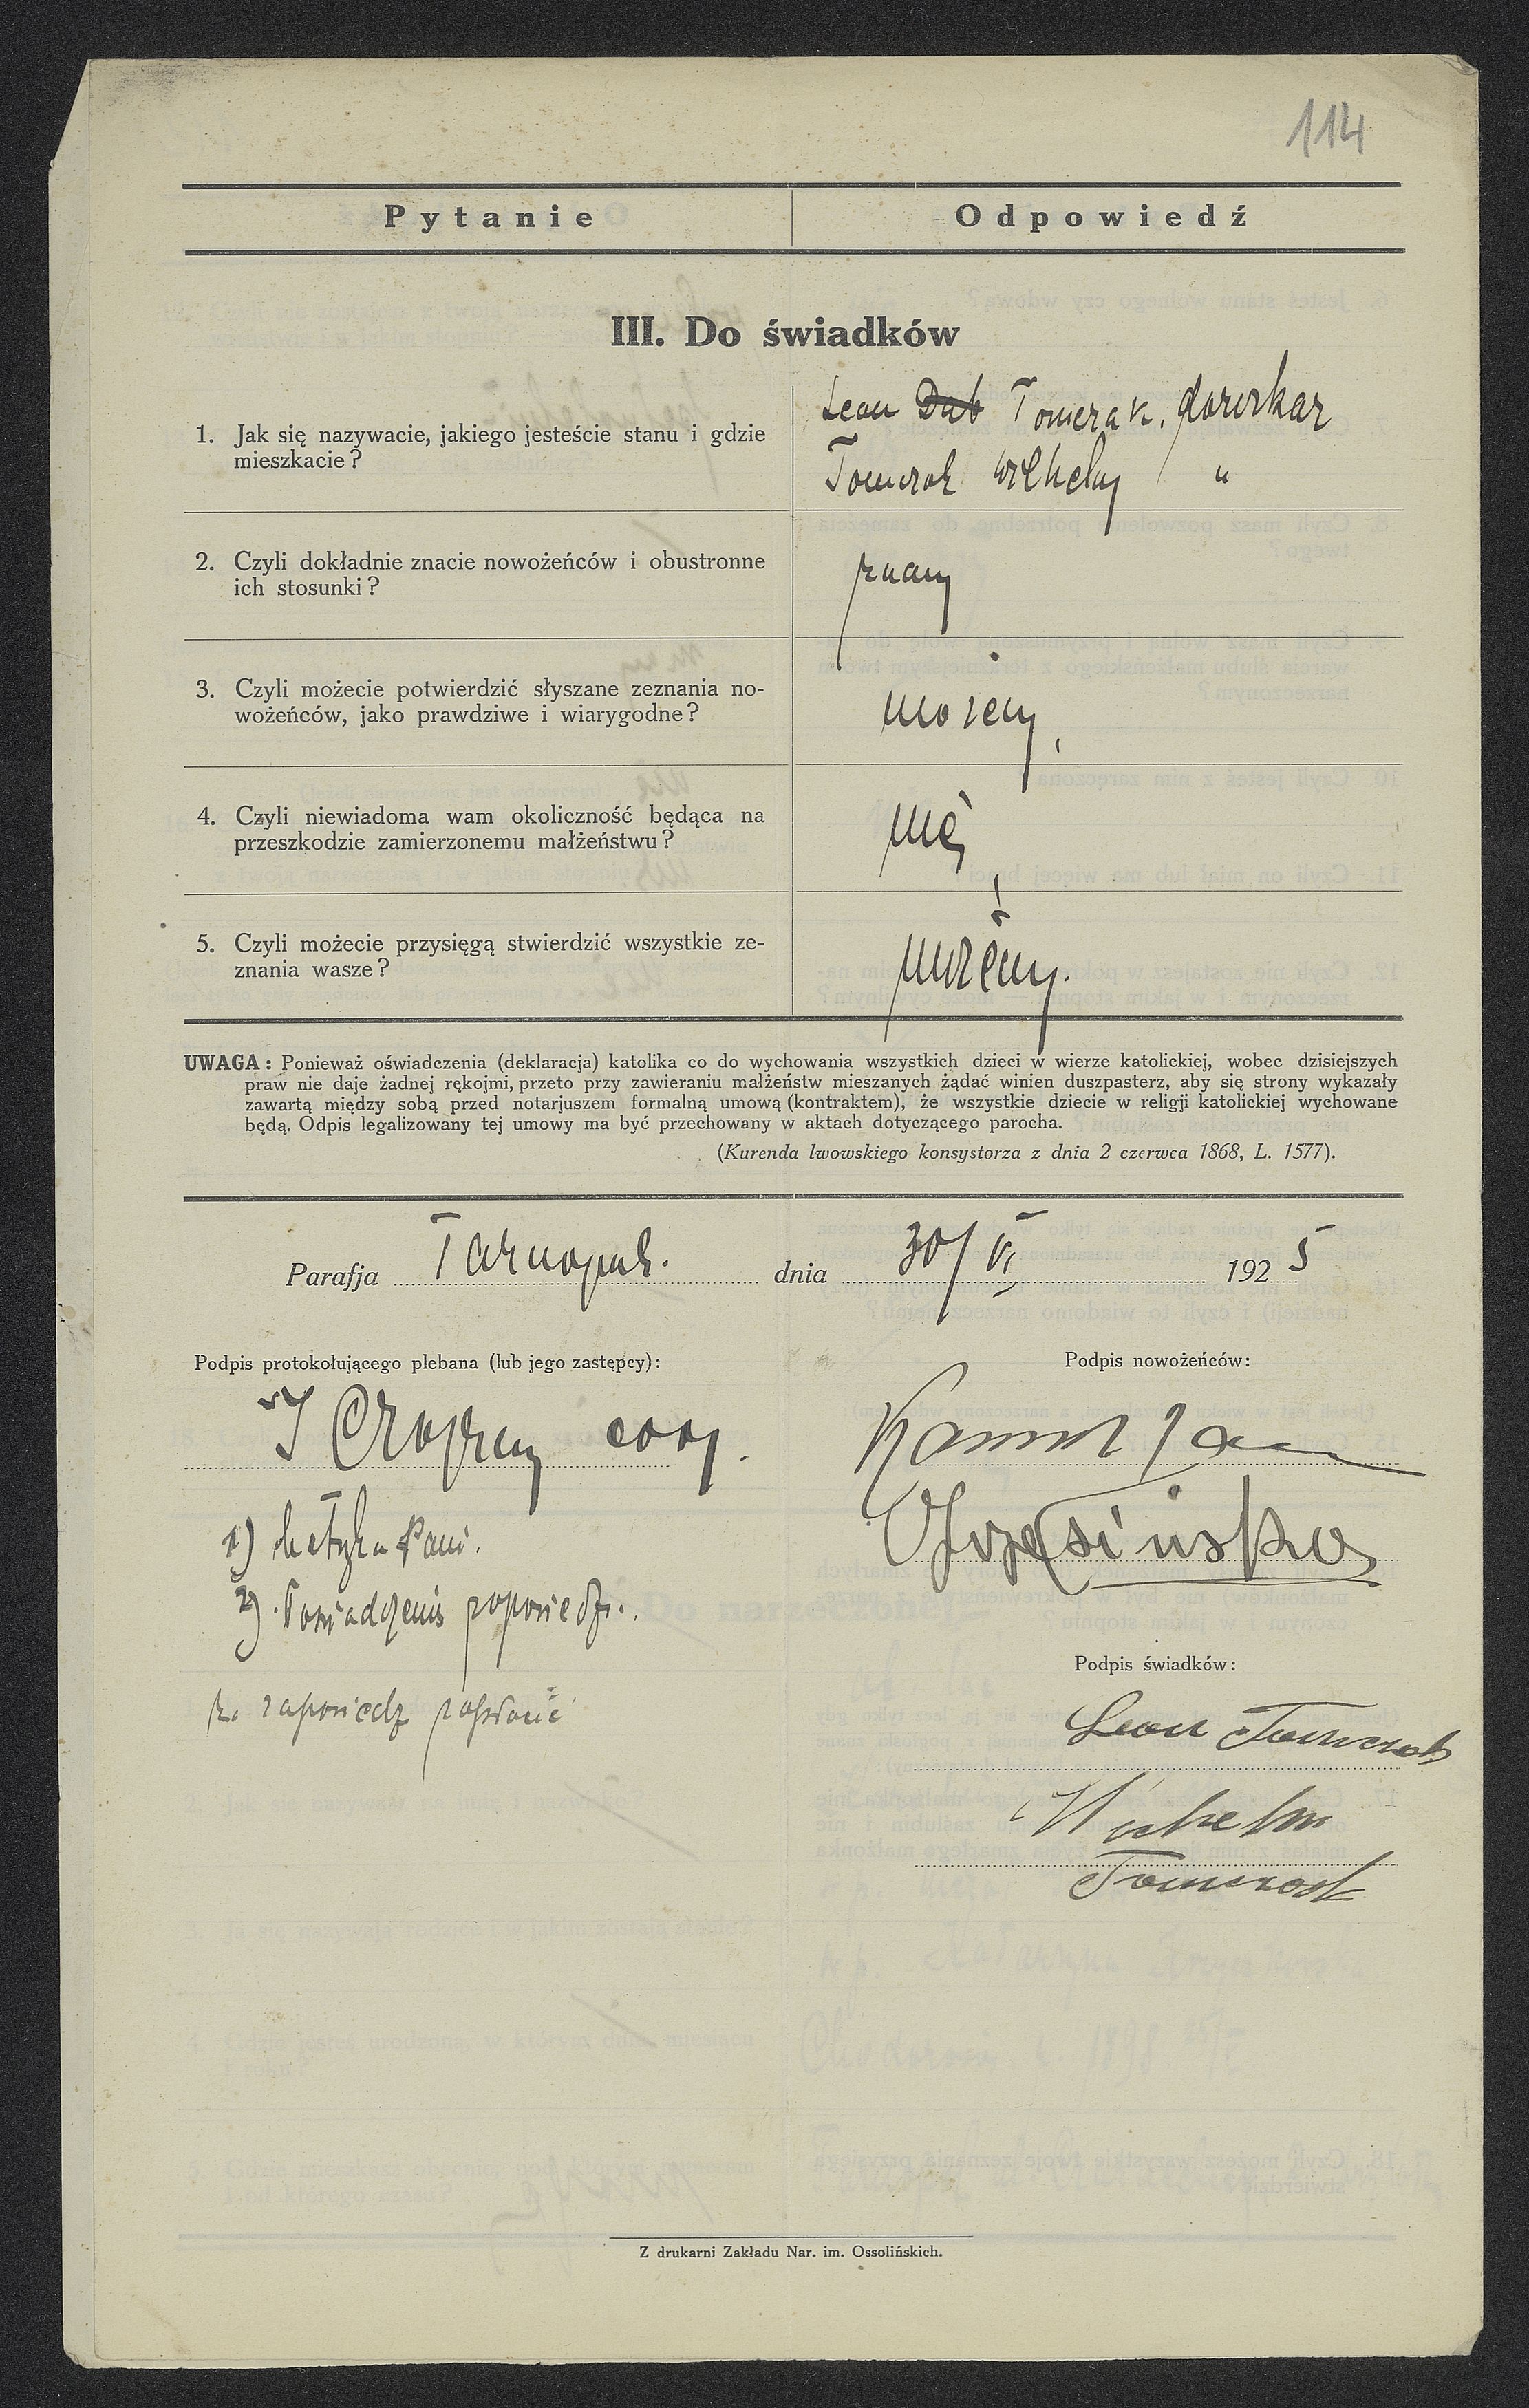 114
Pytanie
Odpowiedź
III. Do świadków
1. Jak się nazywacie, jakiego jesteście stanu i gdzie
mieszkacie?
Leon Dub Tomczak, dorożkarz
Tomczak Wilhelm "
2. Czyli dokładnie znacie nowożeńców i obustronne
ich stosunki?
znamy
3. Czyli możecie potwierdzić słyszane zeznania no-
wożeńców, jako prawdziwe i wiarygodne?
możemy
4. Czyli niewiadoma wam okoliczność będąca na
przeszkodzie zamierzonemu małżeństwu?
nie
5. Czyli możecie przysięgą stwierdzić wszystkie ze-
znania wasze?
możemy.
UWAGA: Ponieważ oświadczenia (deklaracja) katolika co do wychowania wszystkich dzieci w wierze katolickiej, wobec dzisiejszych
praw nie daje żadnej rękojmi, przeto przy zawieraniu małżeństw mieszanych żądać winien duszpasterz, aby się strony wykazały
zawartą między sobą przed notarjuszem formalną umową (kontraktem), że wszystkie dziecie w religji katolickiej wychowane
będą. Odpis legalizowany tej umowy ma być przechowany w aktach dotyczącego parocha.
(Kurenda lwowskiego konsystorza z dnia 2 czerwca 1868, L. 1577).
Parafja Tarnopol. dnia 30/VI 1925
Podpis protokołującego plebana (lub jego zastępcy):
Podpis nowożeńców:
coop.
Jan
1) Metryka Pani.
2) Poświadczenie zapowiedzi.
za zapowiedz zapłacić
Podpis świadków:
Leon Tomczak
Wilhelm
Tomczak
Z drukarni Zakładu Nar. im. Ossolińskich.